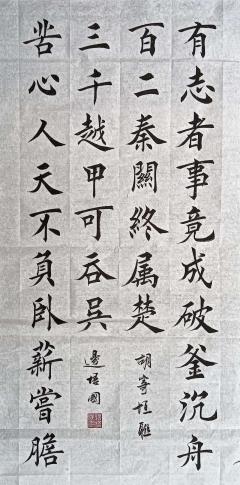 有志者事竟成破釜沉舟
百二秦關終属楚
胡寄
三千越甲可吞吳
邊
苦心人天不負卧薪嘗膽